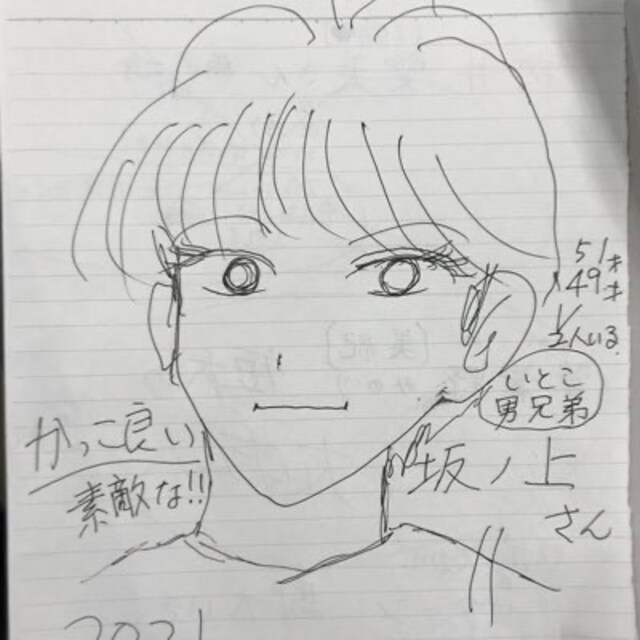 51才
49才
2人いる
いとこ
男兄弟
かっこ良い
素敵な!!
坂ノ上
さん
2021